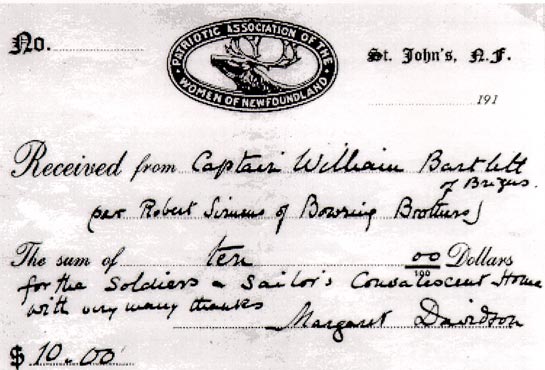 No.
PATRIOTIC ASSOCIATION OF THE
WOMEN OF NEWFOUNDLAND
St. John's, N.F.
191
Received from Captain William Bartlett
of Brigus.
(per Robert Simms of Bowring Brothers)
The sum of ten 00/100 Dollars
for the Soldiers & Sailor's Convalescent Home
with very many thanks
Margaret Davidson
$ 10.00